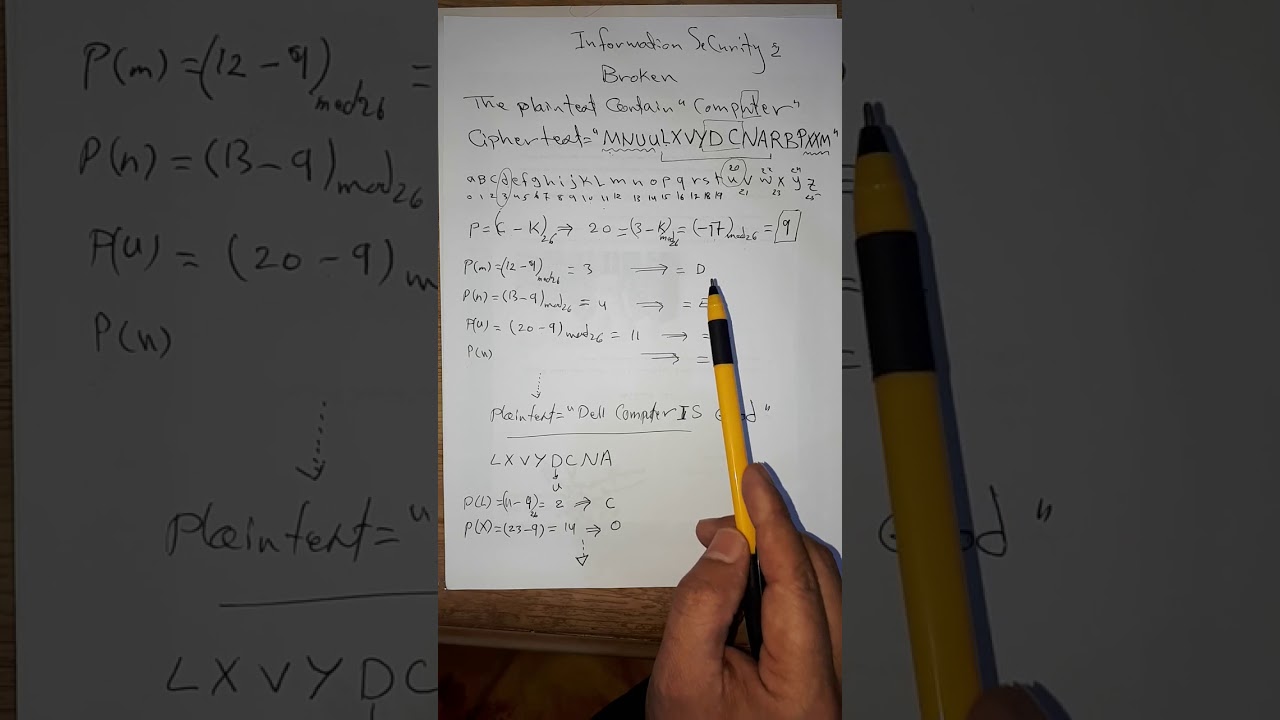 Information Security &
Broken
The plaintext Contain "Computer"
Ciphertext="MNUULXVYDCNARBPXXM"
a B C d e f g h i j k L m n o p q r s t u v w x y z
0 1 2 3 4 5 6 7 8 9 10 11 12 13 14 15 16 17 18 19 20 21 22 23 24 25
P=(C-K)26 ⇒ 20=(3-K)mod26=(-17)mod26=9
P(m)=(12-9)mod26=3 ⟹ = D
P(n)=(13-9)mod26=4 ⟹ = E
P(u)=(20-9)mod26=11 ⟹ =
P(n) ⟹ =
Plaintext="Dell Computer IS Good"
LXVYDCNA
u
P(L)=(11-9)26=2 ⇒ C
P(X)=(23-9)=14 ⇒ O